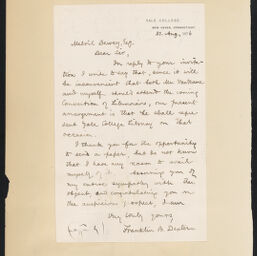 YALE COLLEGE
NEW HAVEN, CONNECTICUT
22 Aug, 1876
Melvil Dewey, Esq.
Dear Sir,
In reply to your invita-
tion I write to say that, since it will
be inconvenient that both Mr. Van Name
and myself should attend the coming
Convention of Librarians, our present
arrangement is that he shall repre-
sent Yale College Library on that
occasion.
I thank you for the opportunity
to send a paper, but do not know
that I have any reason to avail
myself of it. Assuring you of
my entire sympathy with the
object, and congratulating you on
the auspices of I am
Very truly yours,
Franklin B. Dexter